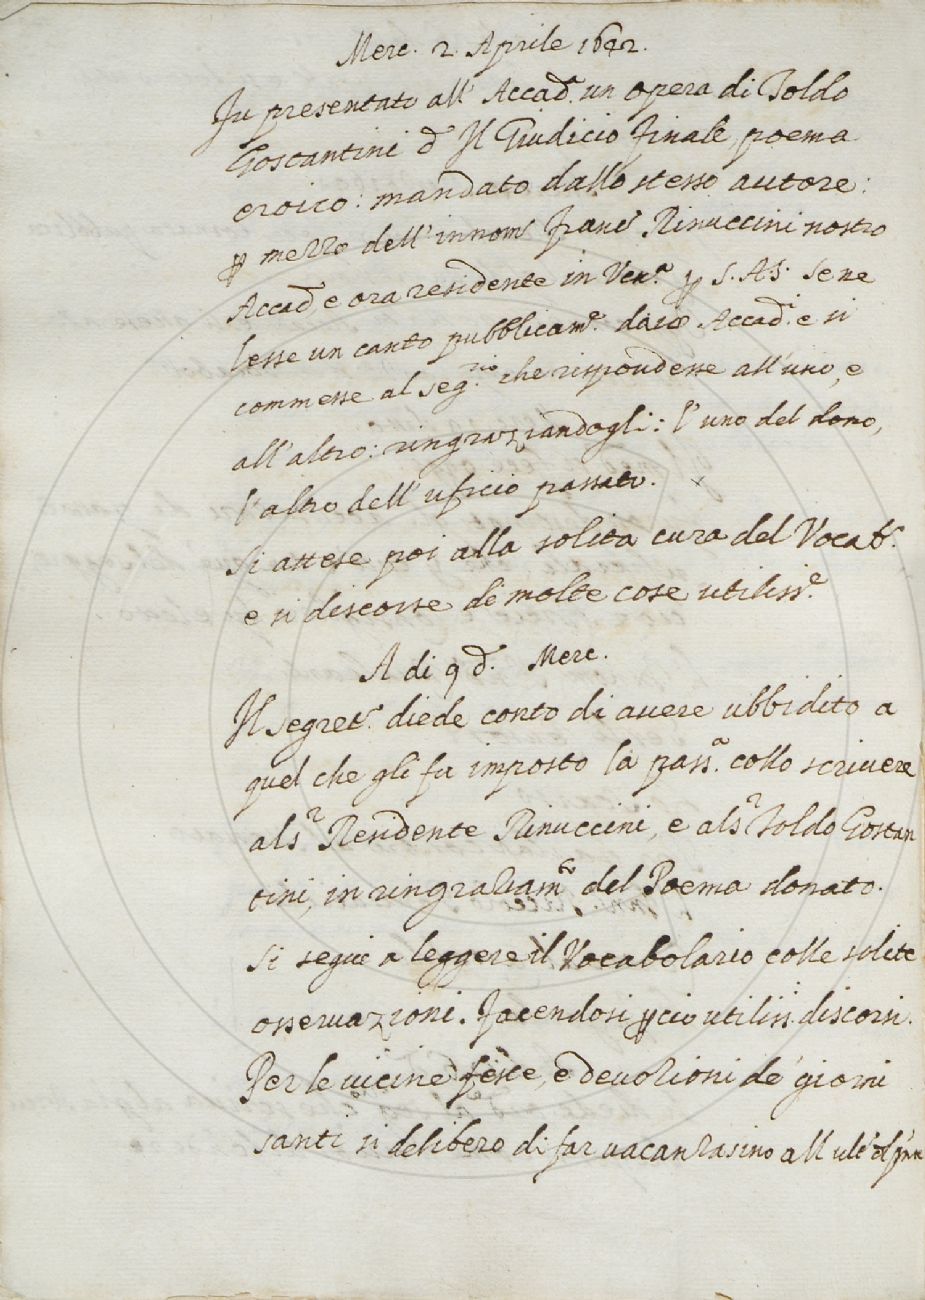 Merc. 2 Aprile 1642.
Fu presentato all' Accad. un opera di Toldo
Gostantini d. Il Giudicio finale, poema
eroico: mandato dallo stesso autore:
p mezzo dell' innom. Franc. Rinuccini nostro
Accad. e ora residente in Ven.a p S. A. S. Se ne
lesse un canto pubblicam.e Accad.i e si
commesse al seg.rio che rispondesse all' uno, e
all' altro: ringraziandogli: l' uno del dono,
l' altro dell' uficio passato.
Si attese poi alla solita cura del Vocab.
e si discorse di molte cose utiliss.e
A di 9 d. Merc.
Il segret. diede conto di avere ubbidito a
quel che gli fu imposto la pass.a collo scrivere
al S.r Residente Rinuccini, e al S.r Toldo Gostan
tini, in ringraziam.o del Poema donato.
Si seguì a leggere il Vocabolario colle solite
osservazioni. Facendosi p ciò utiliss.i discorsi.
Per le vicine feste, e devozioni de' giorni
santi si delibero di far vacanza sino all'